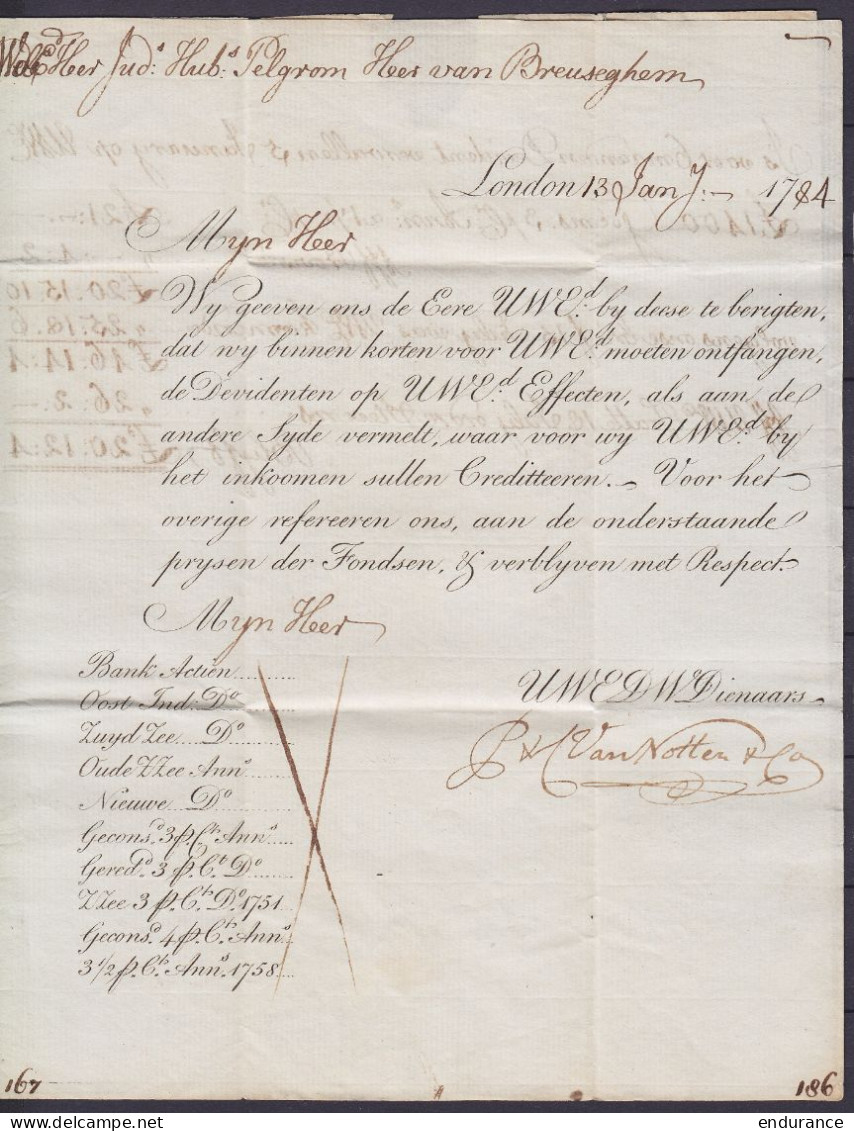 WelEd Heer Juds Hubs Pelgrom Heer van Breuseghem
London 13 Jany:~ 1784
Myn Heer
Wy geeven ons de Eere UWEd: by deese te berigten,
dat wy binnen korten voor UWEd: moeten ontfangen,
de Devidenten op UWEd: Effecten, als aan de
andere Syde vermelt, waar voor wy UWEd: by
het inkoomen sullen Creditteeren. ~ Voor het
overige refereeren ons, aan de onderstaande
prysen der Fondsen, & verblyven met Respect.
Myn Heer
UWEDWe Dienaars
P & C Van Notten & Co
Bank Actien
Oost Ind: Do
Zuyd Zee Do
Oude ZZee Anns
Nieuwe Do
Geconsd 3 p. Ct Anns
Geredd 3 p. Ct Do
ZZee 3 p. Ct Do 1751
Geconsd 4 p. Ct Anns
3 1/2 p. Ct Anns 1758
167
186
endurance